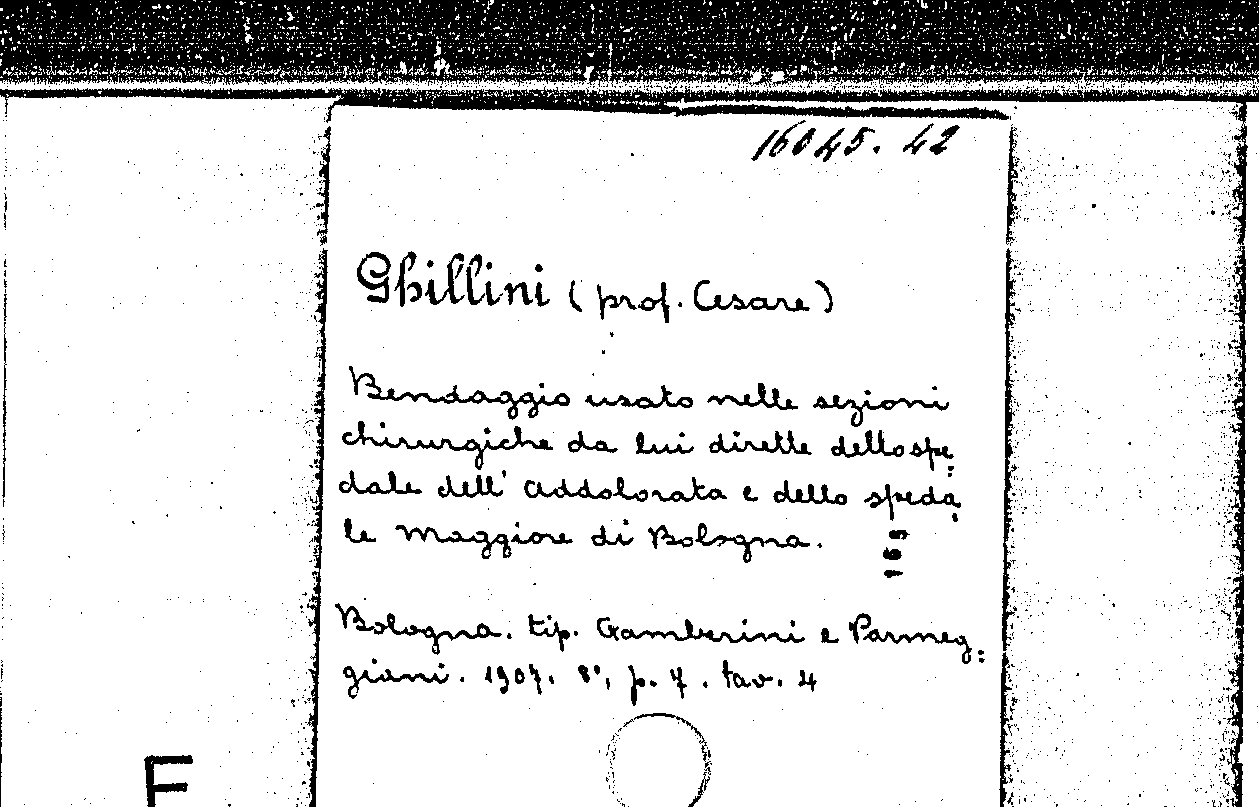 16045. 42
Ghillini (prof. Cesare)
Bendaggio usato nelle sezioni
chirurgiche da lui dirette dello spe:
dale dell' Addolorata e dello speda
le Maggiore di Bologna.
163
Bologna. tip. Gamberini e Parmeg:
giani. 1907. 8°, p. 7. tav. 4
F